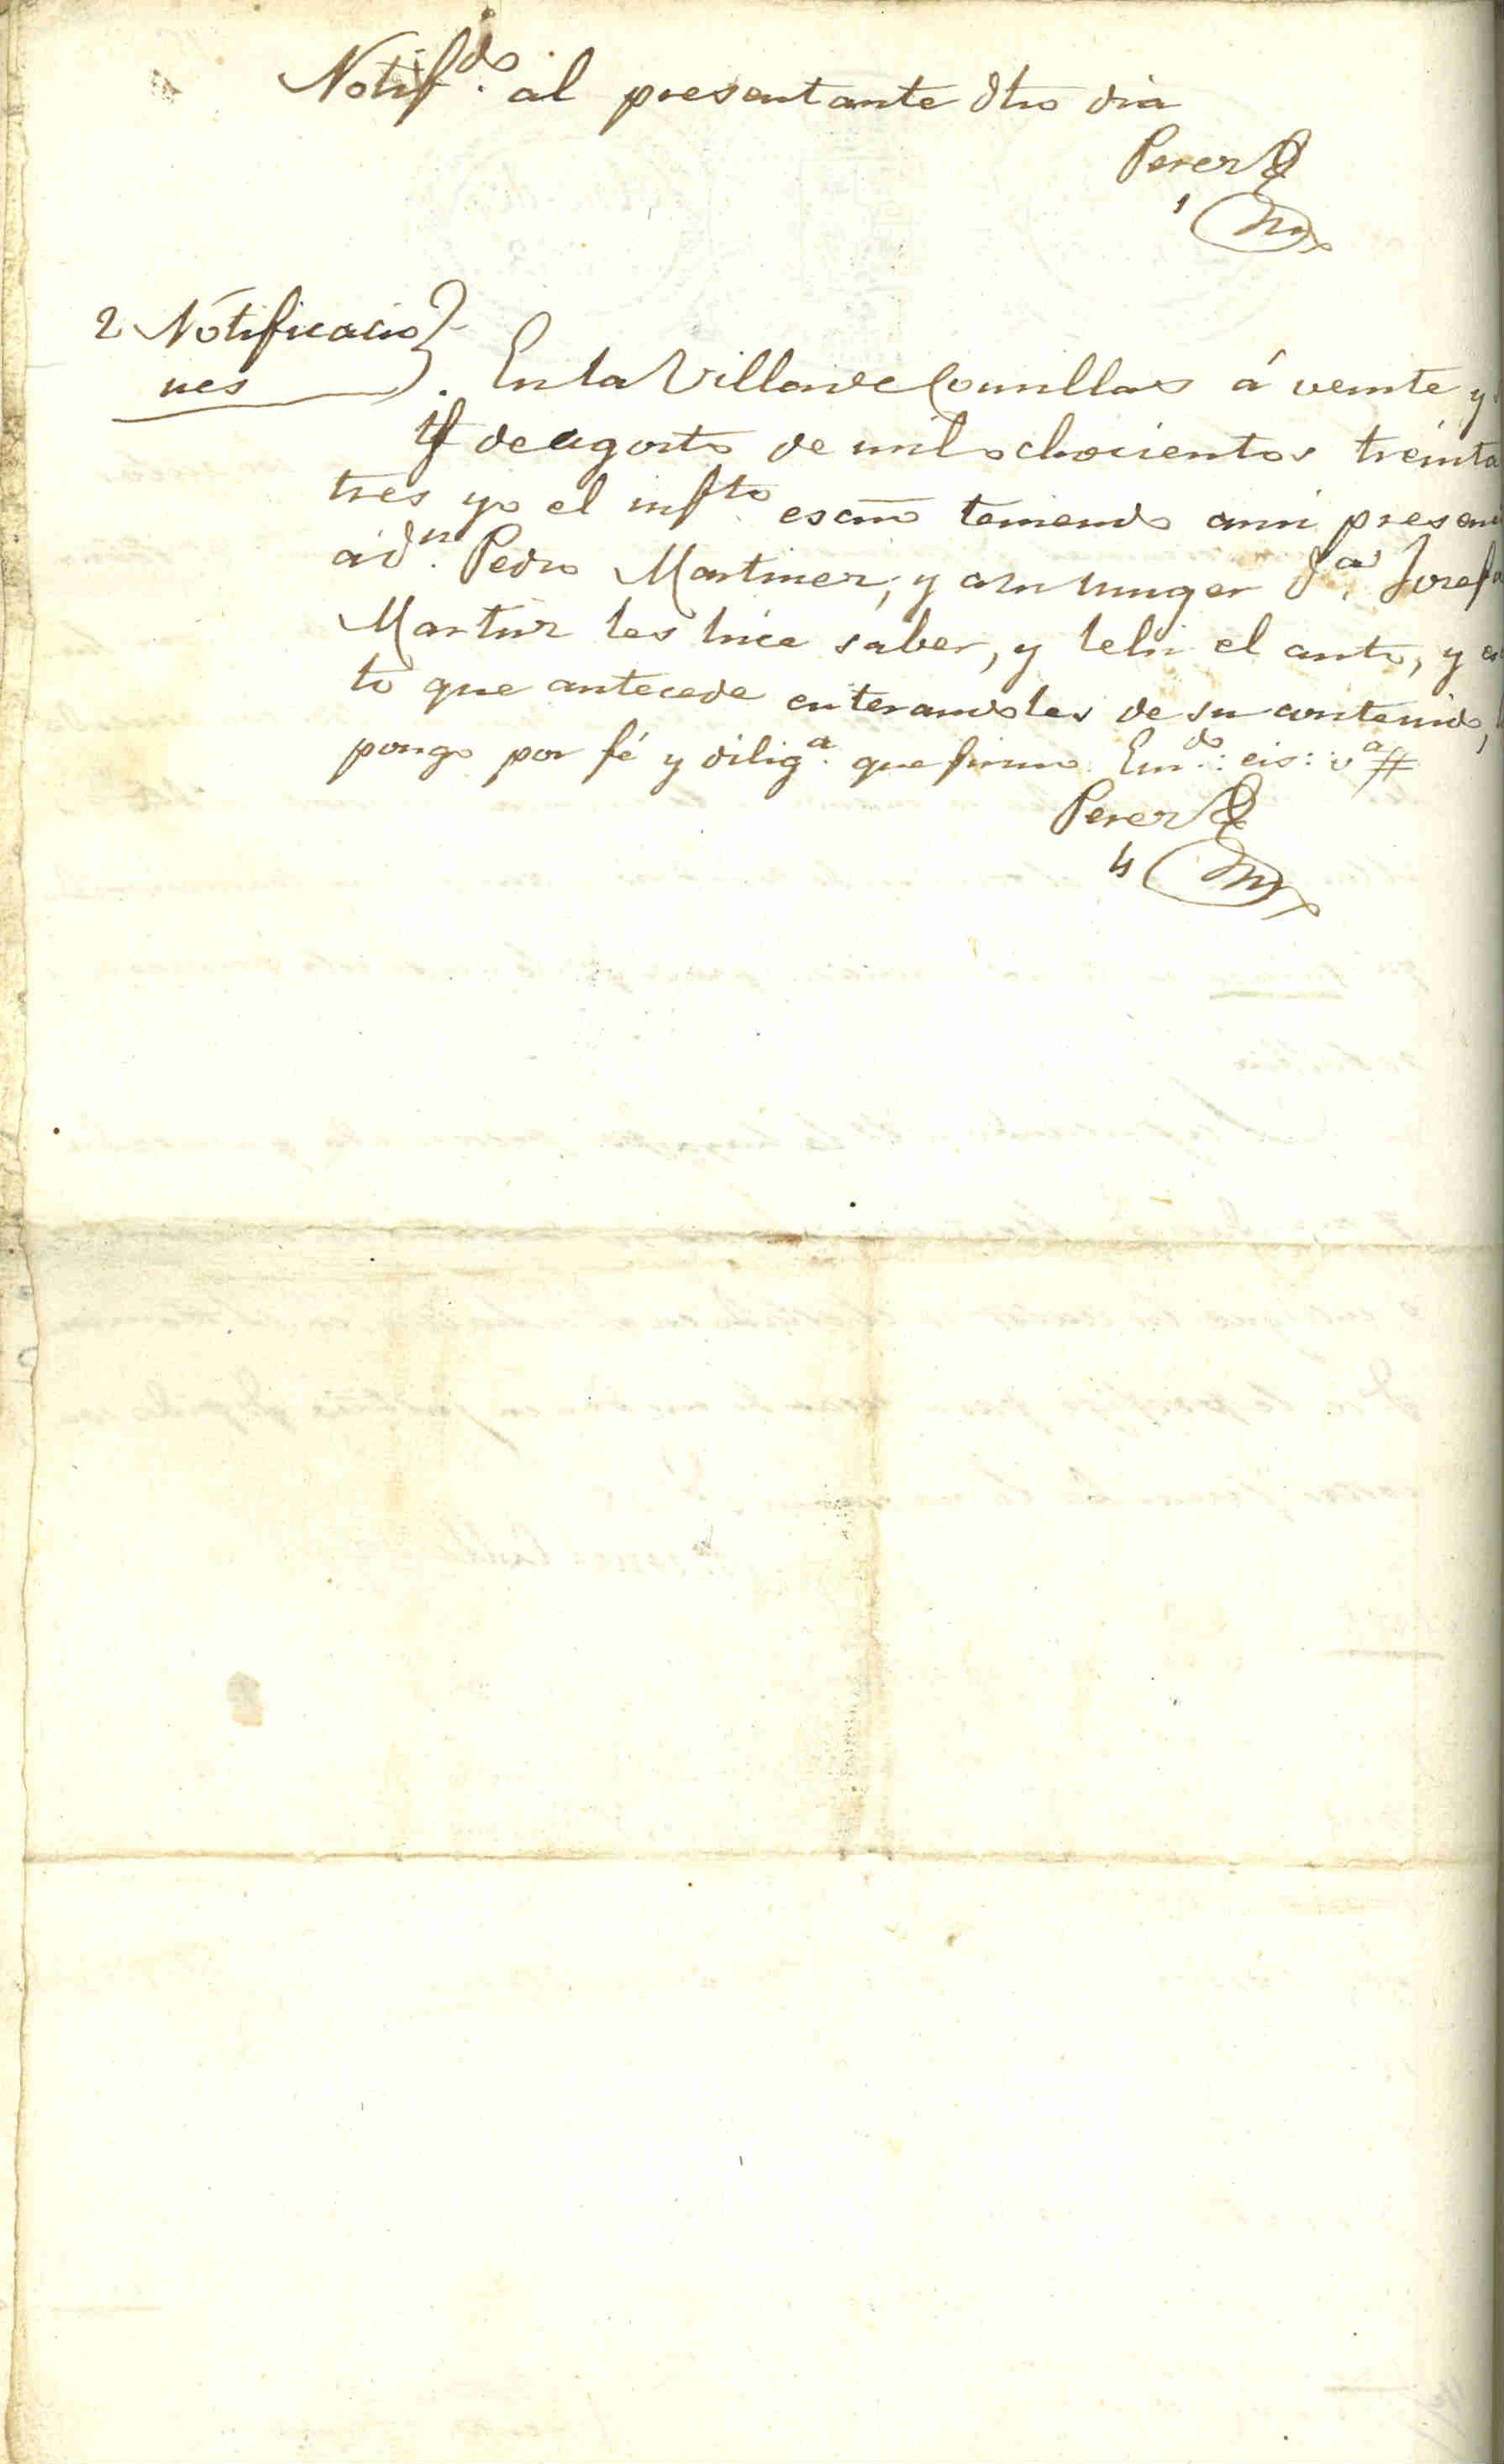 Notif.do al presentante dho dia
Perez
1
2 Notificacio
nes
En la Villa de Comillas á veinte y
de agosto de mil ochocientos treinta
tres yo el inf.to escrno teniendo a mi presen
a d.n Pedro Martinez, y a su muger d.a Josefa
Martinz les hice saber, y lehi el auto, y es
to que antecede enterandoles de su contenido,
pongo por fé y dilig.a que firmo. Em.do: eis: v.a #
Perez
4